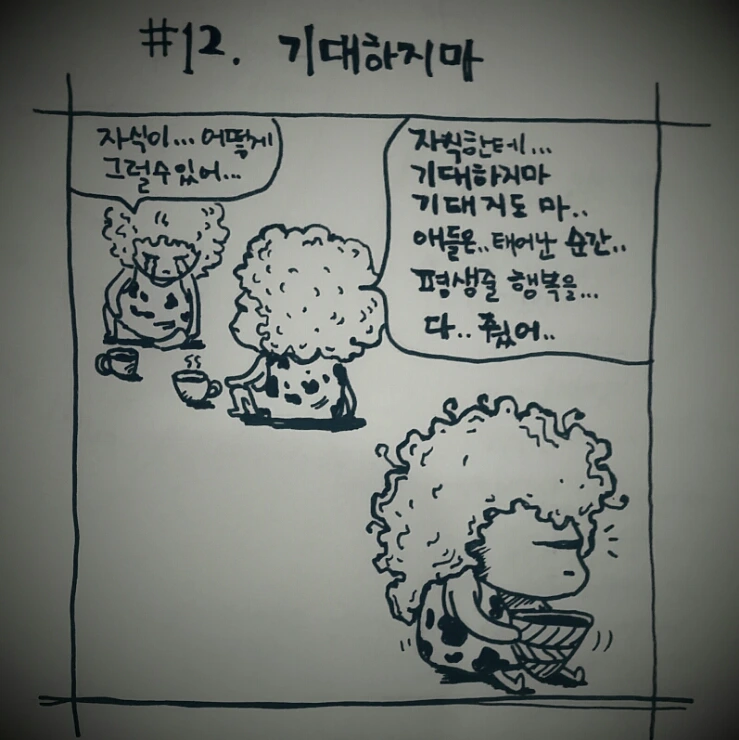 #12. 기대하지마
자식이... 어떻게
그럴수있어...
자식한테...
기대하지마
기대지도 마..
애들은.. 태어난 순간..
평생줄 행복을...
다.. 줬어..